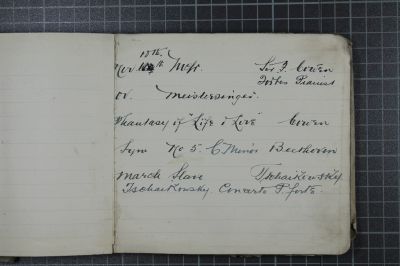 15th.
Nov Sir F. Cowen
Forbes Pianist
Ov. Meistersinger.
Phantasy of "Life & Love" Cowen
Sym No 5. C Minor Beethoven
March Slave Tschaikowsky
Tschaikowsky. Concerto P. forte.